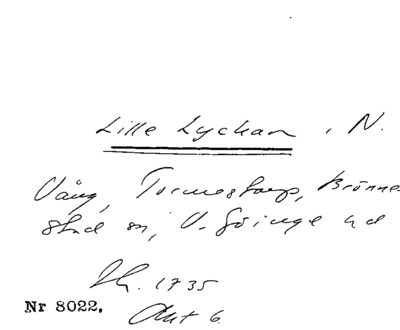 Lille Lyckan, N.
Vång, Tormestorp, Brönne-
stad sn, V. Göinge hd
Lh. 1735
Akt 6.
Nr 8022.